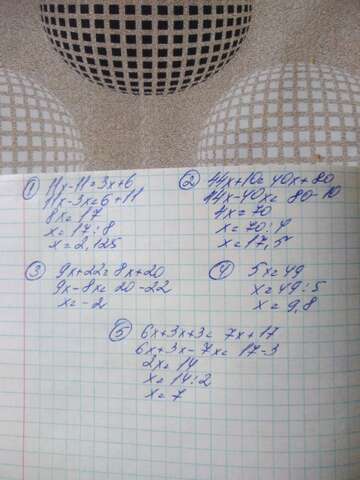 ① 11x-11=3x+6
11x-3x=6+11
8x=17
x=17:8
x=2,125
② 44x+10=40x+80
44x-40x=80-10
4x=70
x=70:4
x=17,5
③ 9x+22=8x+20
9x-8x=20-22
x=-2
④ 5x=49
x=49:5
x=9,8
⑤ 6x+3x+3=7x+17
6x+3x-7x=17-3
2x=14
x=14:2
x=7